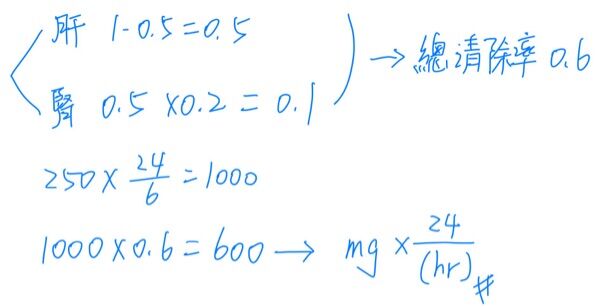 肝 1-0.5=0.5
腎 0.5 ×0.2 = 0.1
→ 總清除率 0.6
250 × 24/6 = 1000
1000×0.6 = 600 → mg × 24/(hr) #